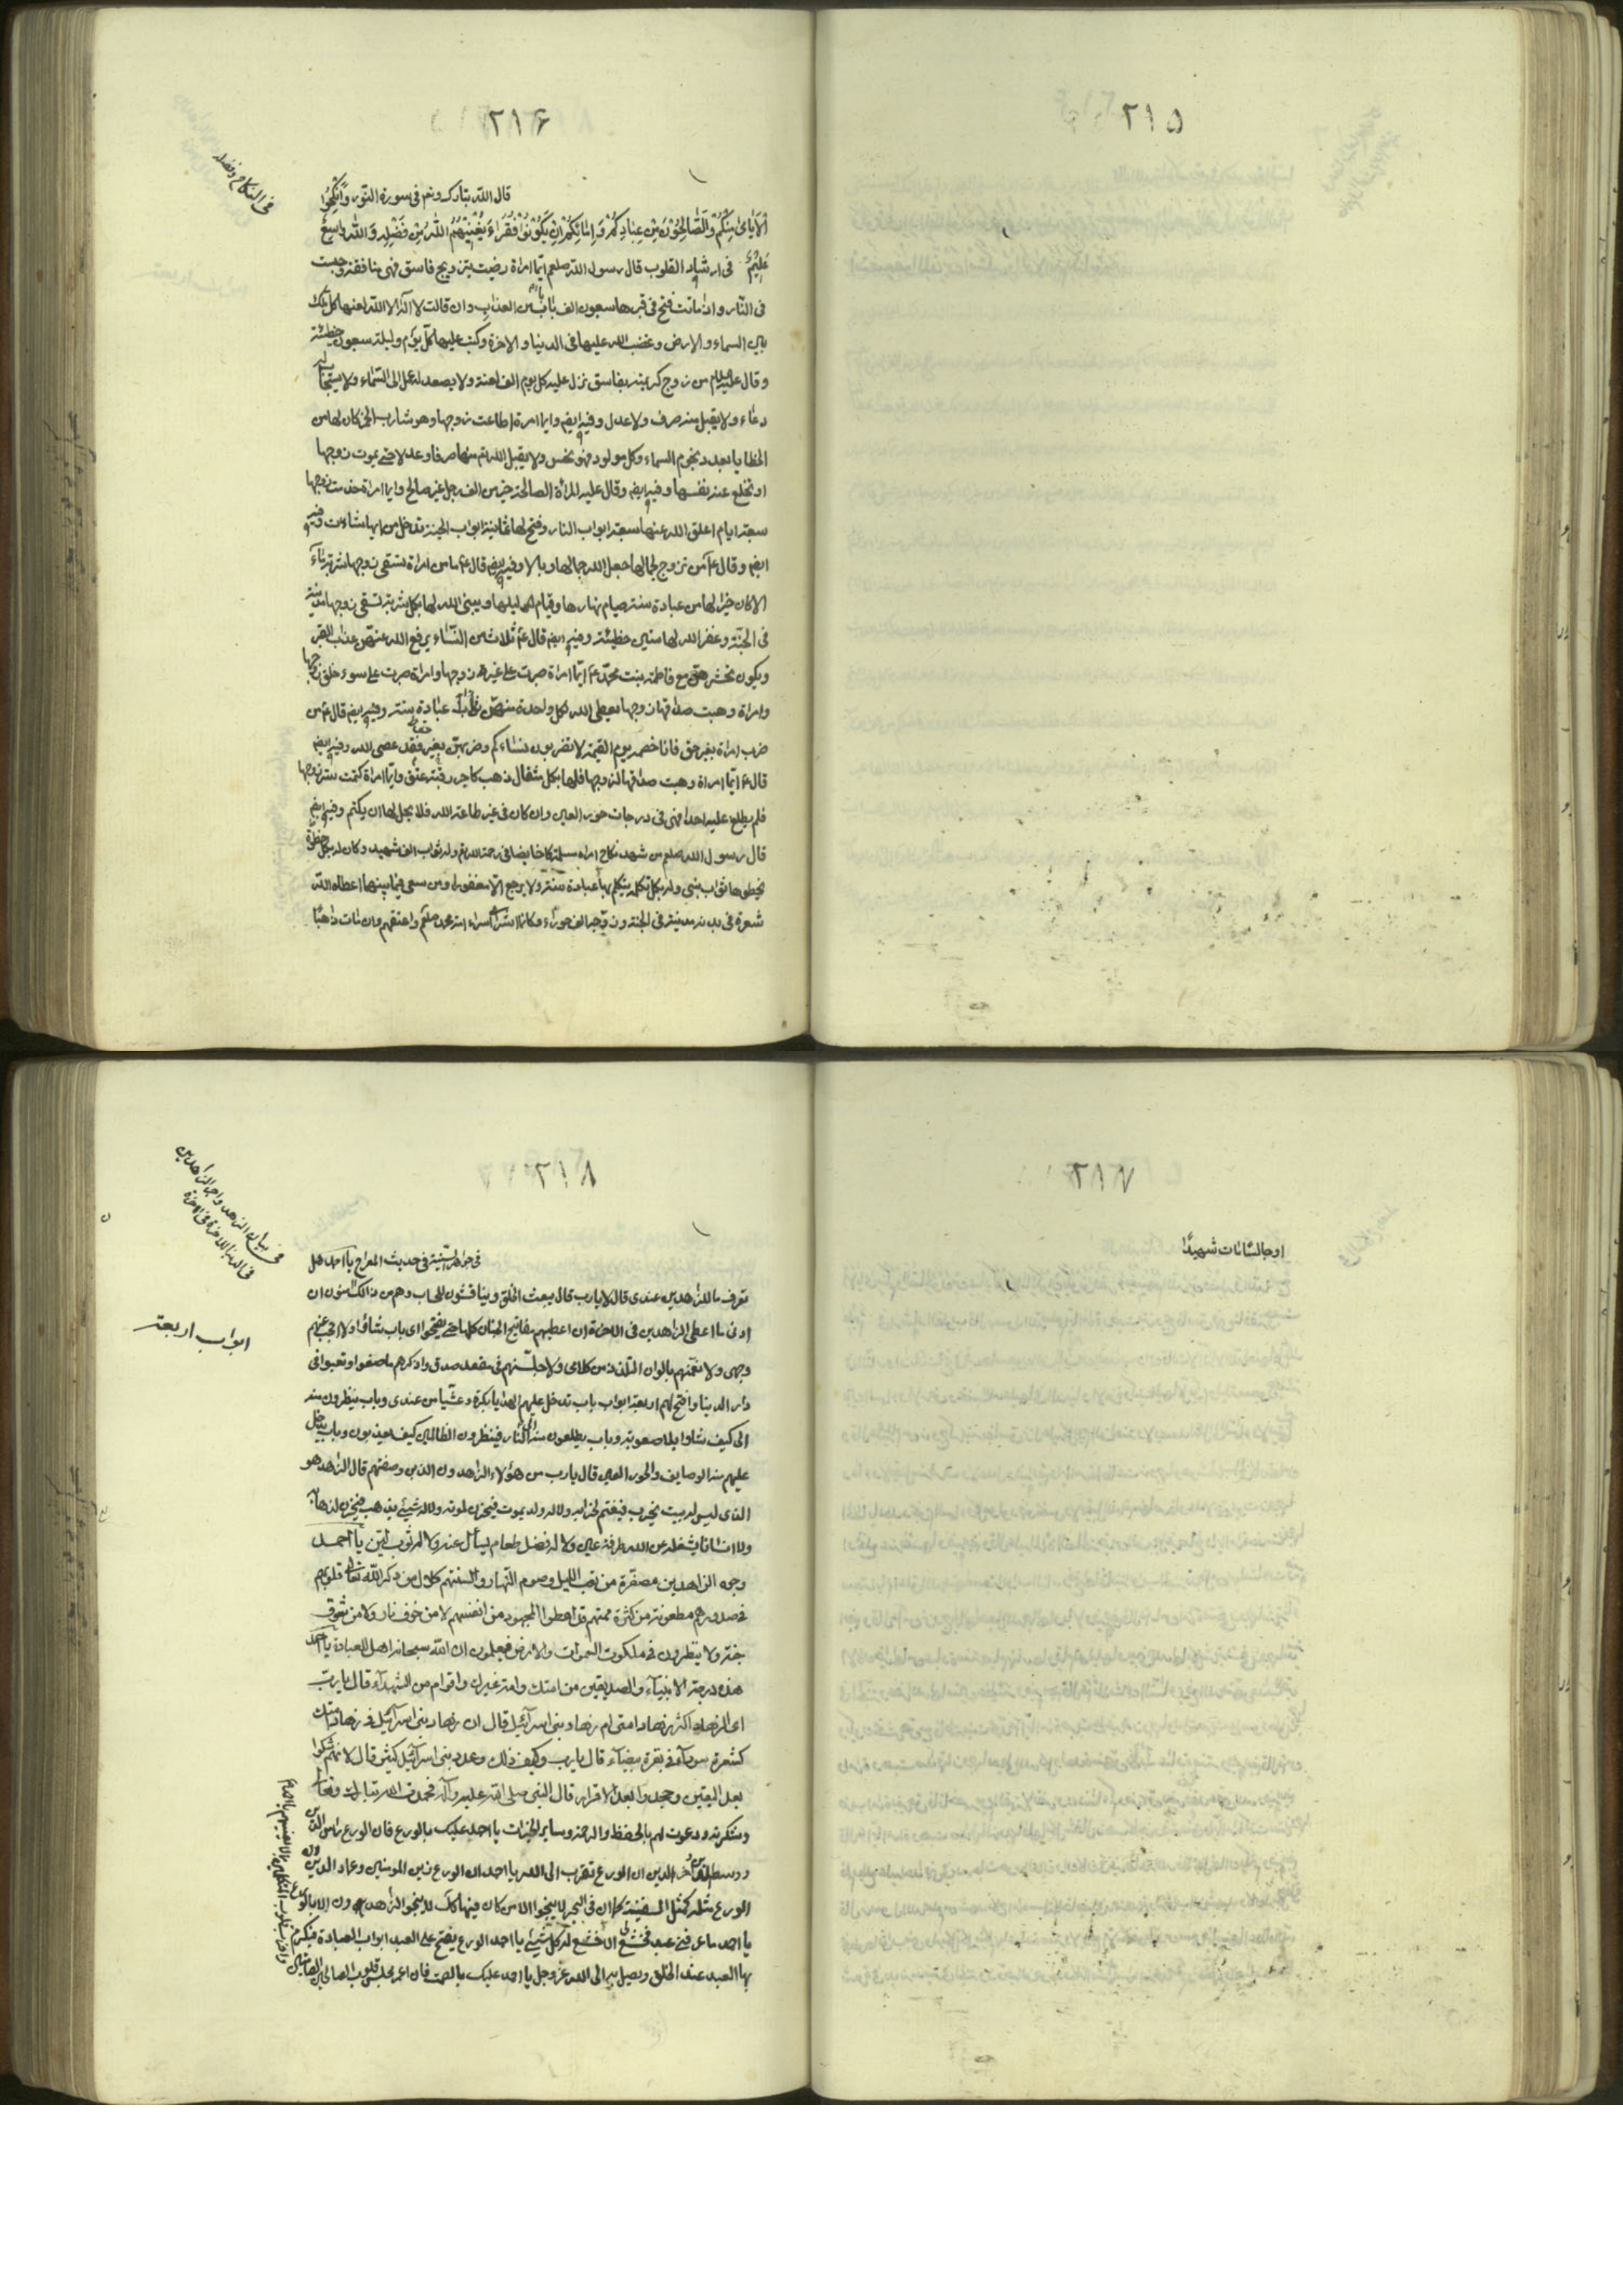 ٢١٥
٢١۶
فی النکاح و فضله
قال الله تبارک وتعم فی سورة النّور وَأَنْكِحُوا
الْأَيَامَىٰ مِنْكُمْ وَالصَّالِحِينَ مِنْ عِبَادِكُمْ وَإِمَائِكُمْ إِنْ يَكُونُوا فُقَرَاءَ يُغْنِيهُمُ اللهُ مِنْ فَضْلِهِ وَاللهُ وَاسِعٌ
عَلِيمٌ فی ارشاد القلوب قال رسول الله صلعم ایّما امراة رضیت بتزویج فاسق فهی منافقة وجبت
فی النّار واذا ماتت فتح فی قبرها سبعون الف باب من العذاب وان قالت لا اله الا الله لعنها کل ملک
بین السماء والارض وغضب الله علیها فی الدنیا والاخرة وکتب علیها کلّ یوم ولیلة سبعون خطیئة
وقال علیه السلام من زوج کریمته بفاسق نزل علیه کل یوم الف لعنة ولا یصعد له عمل الی السّماء ولا یستجاب له
دعاء ولا یقبل منه صرف ولا عدل وفیه ایضم وایما امرة اطاعت زوجها وهو شارب الخمر کان لها من
الخطایا بعدد نجوم السماء وکل مولود فهو نجس ولا یقبل الله تعم منها صرفا وعدلا حتی یموت زوجها
او تخلع عنه نفسها وفیه ایضم وقال علیه المرأة الصالحة خیر من الف رجل غیر صالح وایما امراة خدمت زوجها
سبعة ایام اغلق الله عنها سبعة ابواب النار وفتح لها ثمانیة ابواب الجنة تدخل من ایها شاءت وفیه
ایضم وقال ع من تزوج لجمالها جعل الله جمالها وبالا وفیه ایضم قال ع ما من امراة تسقی زوجها شربة ماء
الا کان خیرا لها من عبادة سنة صیام نهارها وقیام لیلها ویبنی الله لها بکل شربة تسقی زوجها مدینة
فی الجنّة وغفر الله لها ستین خطیئة وفیه ایضم قال ع ثلاث من النّساء یرفع الله عنهنّ عذاب القبر
ویکون محشرهنّ مع فاطمة بنت محمّد ع ایّما امراة صبرت علی غیرة زوجها وامراة صبرت علی سوء خلق زوجها
وامراة وهبت صداقها زوجها یعطی الله لکل واحدة منهنّ ثواب عبادة سنة وفیه ایضم قال ع من
ضرب امراة بغیر حق فانا خصمه یوم القیمة لا تضربون نساءکم فمن ضربهنّ بغیر حق فقد عصی الله وفیه ایضم
قال ع ایّما امراة وهبت صداقها لزوجها فلها بکل مثقال ذهب کاجر رقبة عتق وایّما امراة کتمت ستر زوجها
فلم یطلع علیه احدا فهی فی درجات حور العین وان کان فی غیر طاعة الله فلا یحل لها ان یکتم وفیه ایضم
قال رسول الله صلعم من شهد نکاح امراة مسلمة کان خائضا فی رحمة الله تعم وله ثواب الف شهید وکان له بکل خطوة
یخطوها ثواب نبی وله بکل کلمة یتکلم بها عبادة سنة ولا یرجع الّا مغفورا ومن سعی فیما بینهما اعطاه الله
شعرة فی بدنه مدینة فی الجنة وزوجه الف حوراء وکانما اشتری اسراء امة محمد صلعم واعتقهم وان مات ذاهبًا
٢١٧
او جالسًا مات شهیدًا
٢١٨
فی بیان الزهد واجر الزاهدین
فی الدنیا والاخرة
ابواب اربعة
فی جواهر السّنیّة فی حدیث المعراج یا احمد هل
تعرف ما للزاهدین عندی قال لا یارب قال یبعث الخلق ویناقشون للحساب وهم من ذلک آمنون ان
ادنی ما اعطی الزاهدین فی الاخرة ان اعطیهم مفاتیح الجنان کلها حتی یفتحوا ای باب شاؤا ولا احجب عنهم
وجهی ولا نعّمنهم بالوان التلذذ من کلامی ولاجلسنهم فی مقعد صدق واذکرهم ما صنعوا وتعبوا فی
دار الدنیا وافتح لهم اربعة ابواب باب تدخل علیهم الهدایا بکرة وعشیّا من عندی وباب ینظرون منه
الی کیف شاؤا بلا صعوبة وباب یطلعون منه الی النار فینظرون الظالمین کیف یعذبون وباب یدخل
علیهم منه الوصایف والحور العین قال یارب من هؤلاء الزاهدون الذین وصفتهم قال الزاهد هو
الذی لیس له بیت یخرب فیغتم لخرابه ولا له ولد یموت فیحزن لموته ولا له شیئ یذهب فیحزن لذهابه
ولا انسانا یشغله عن الله طرفة عین ولا له فضل طعام یسأل عنه ولا له ثوب لیّن یا احمد
وجوه الزاهدین مصفرّة من تعب اللیل وصوم النّهار والسنتهم کلال من ذکر الله تعالی قلوبهم
فی صدورهم مطعونة من کثرة صمتهم قد اعطوا المجهود من انفسهم لا من خوف نار ولا من شوق
جنة ولا ینظرون فی ملکوت السموات والارض فیعلمون ان الله سبحانه اهل للعبادة یا احمد
هذه درجة الانبیآء والصدیقین من امتک وامة غیرک واقوام من الشهدآء قال یا ربّ
ای الزهاد اکثر زهاد امتی ام زهاد بنی اسرآئیل قال ان زهاد بنی اسرآئیل فی زهاد امتک
کشعرة سوداء فی بقرة بیضآء قال یارب وکیف ذلک وعدد بنی اسرآئیل کثیر قال لانهم شکوا
بعد الیقین وجحدوا بعد الاقرار قال النبی صلی الله علیه وآله فحمدت الله تبارک وتعالی
وشکرته ودعوت لهم بالحفظ والرحمة وسایر الخیرات یا احمد علیک بالورع فان الورع راس الدین
ووسط الدین وآخر الدین ان الورع تقرب الی الله یا احمد ان الورع زین المومنین وعماد الدین
الورع مثله کمثل السفینة کما ان فی البحر لا ینجوا الا من کان فیها کذلک لا ینجو الزاهدون الا بالورع
یا احمد ما عرفنی عبد فخشع لی الا خشع له کل شیئ یا احمد الورع یفتح علی العبد ابواب العبادة فیکرم
بها العبد عند الخلق ویصل به الی الله عزوجل یا احمد علیک بالصمت فان اعمر مجلس قلوب الصالحین والصامتین